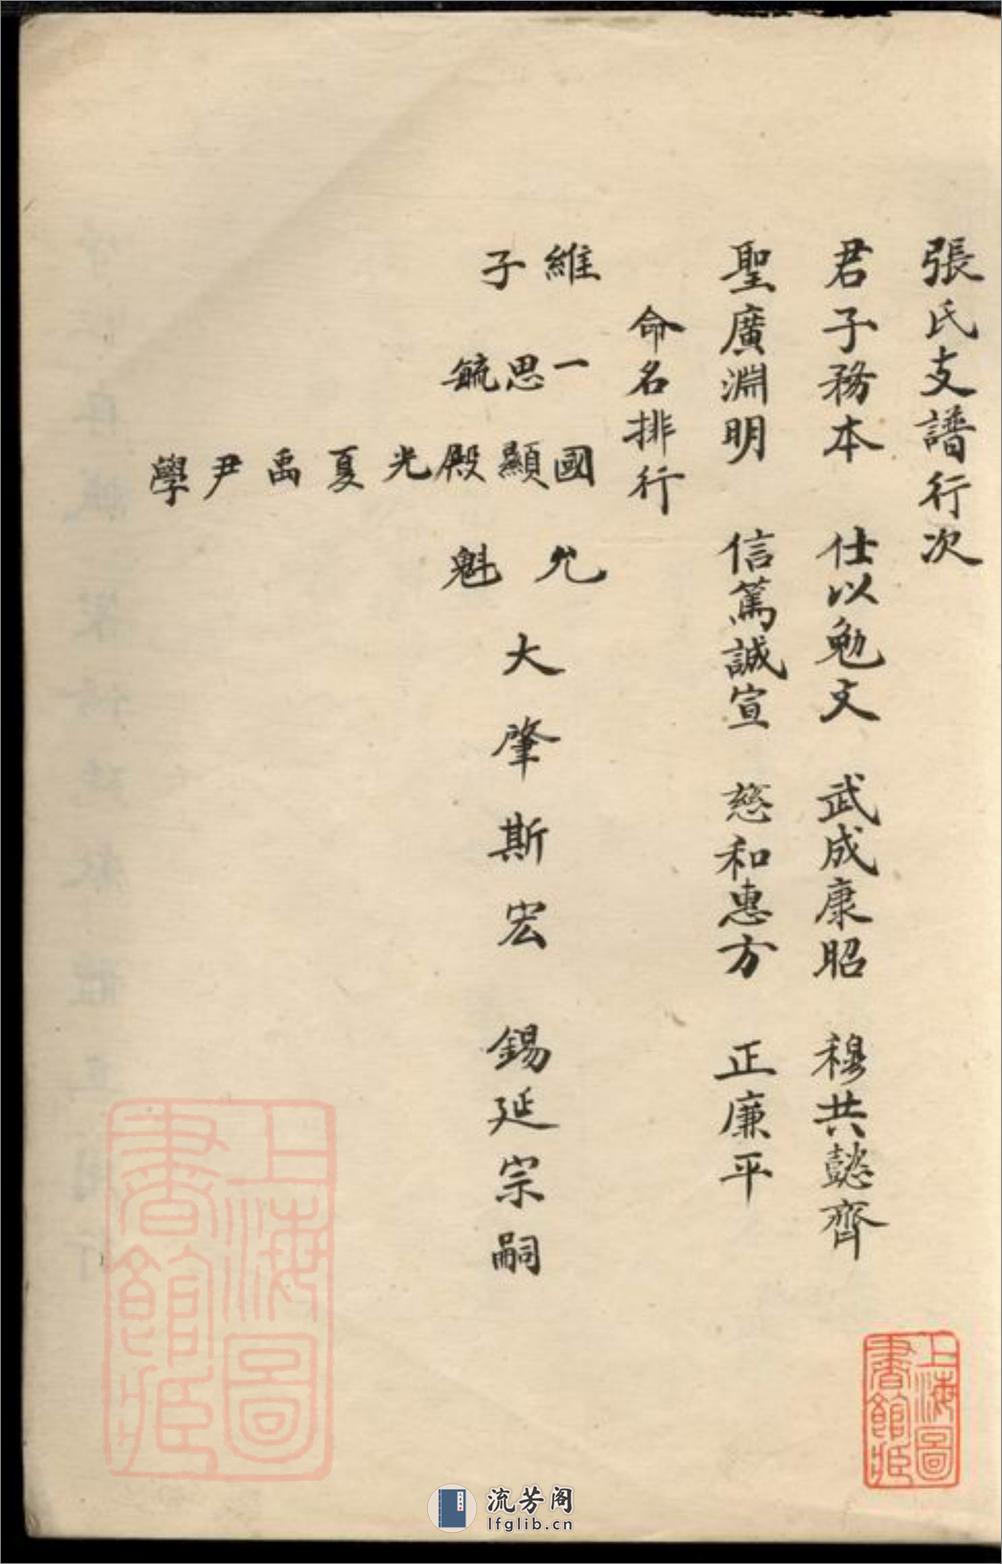 張氏支譜行次
君子務本 仕以勉文 武成康昭 穆共懿齊
聖廣淵明 信篤誠宣 慈和惠方 正廉平
命名排行
維 一 國 允
子 思 顯
毓 殿 魁
光
夏
禹
尹
學
大肇斯宏 錫延宗嗣
上海圖書館藏
上海圖書館藏
流芳阁
lfglib.cn